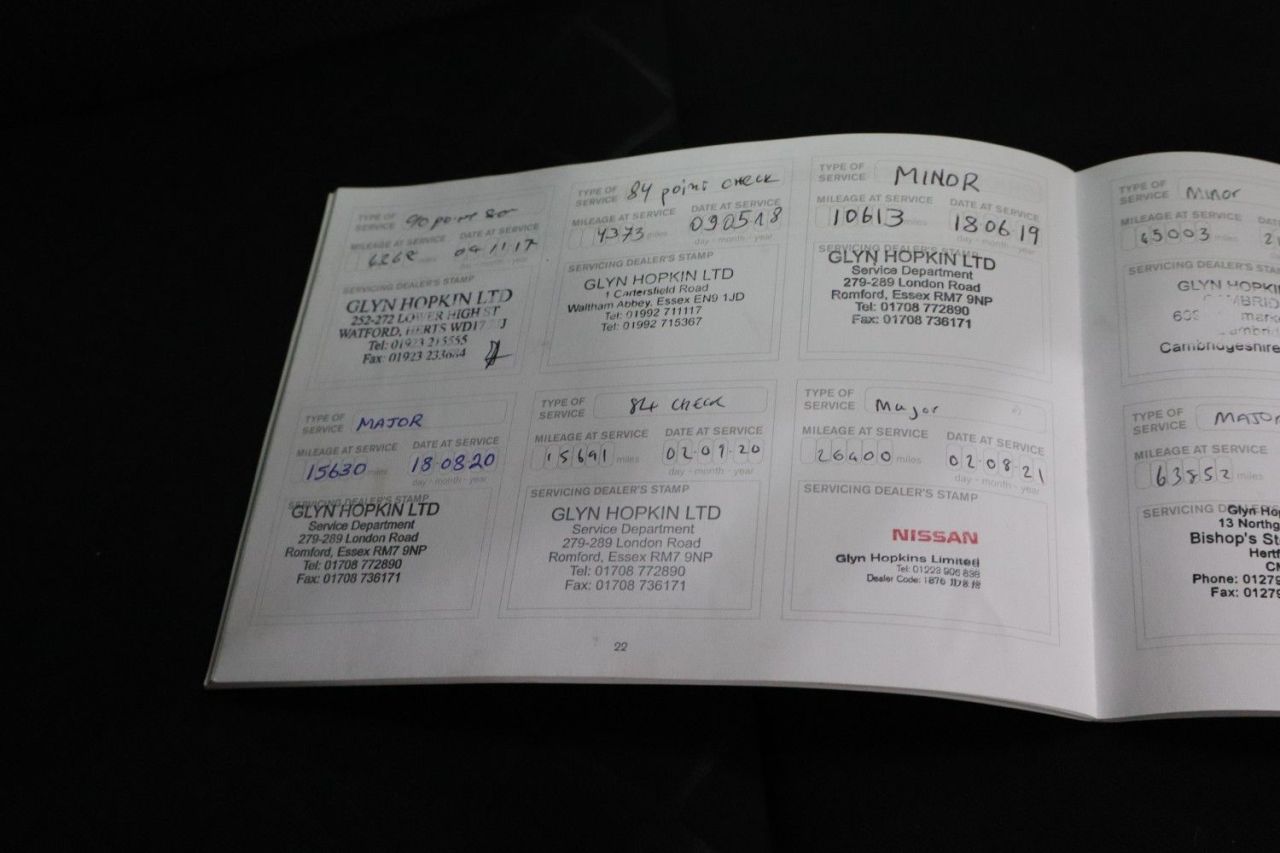 TYPE OF SERVICE 90 point
MILEAGE AT SERVICE DATE AT SERVICE
miles 04 11 17
day - month - year
SERVICING DEALER'S STAMP
GLYN HOPKIN LTD
252-272 LOWER HIGH ST
WATFORD, HERTS
Tel: 01923 215555
Fax: 01923
TYPE OF SERVICE 84 point check
MILEAGE AT SERVICE DATE AT SERVICE
4373 miles 090518
day - month - year
SERVICING DEALER'S STAMP
GLYN HOPKIN LTD
1 Cartersfield Road
Waltham Abbey, Essex EN9 1JD
Tel: 01992 711117
Tel: 01992 715367
TYPE OF SERVICE MINOR
MILEAGE AT SERVICE DATE AT SERVICE
10613 miles 18 06 19
day - month - year
SERVICING DEALER'S STAMP
GLYN HOPKIN LTD
Service Department
279-289 London Road
Romford, Essex RM7 9NP
Tel: 01708 772890
Fax: 01708 736171
TYPE OF SERVICE Minor
MILEAGE AT SERVICE
45003 miles
SERVICING DEALER'S STA
GLYN HOPKI
Cambridgeshire
TYPE OF SERVICE MAJOR
MILEAGE AT SERVICE DATE AT SERVICE
15630 miles 18-08-20
day - month - year
SERVICING DEALER'S STAMP
GLYN HOPKIN LTD
Service Department
279-289 London Road
Romford, Essex RM7 9NP
Tel: 01708 772890
Fax: 01708 736171
TYPE OF SERVICE 84 CHECK
MILEAGE AT SERVICE DATE AT SERVICE
15691 miles 02-09-20
day - month - year
SERVICING DEALER'S STAMP
GLYN HOPKIN LTD
Service Department
279-289 London Road
Romford, Essex RM7 9NP
Tel: 01708 772890
Fax: 01708 736171
TYPE OF SERVICE Major
MILEAGE AT SERVICE DATE AT SERVICE
26400 miles 02-08-21
day - month - year
SERVICING DEALER'S STAMP
NISSAN
Glyn Hopkins Limited
Tel: 01223 906 838
Dealer Code: 1876
TYPE OF SERVICE MAJOR
MILEAGE AT SERVICE
63852 miles
SERVICING DEALER'S STA
Glyn Hop
13 Northg
Bishop's St
Hertf
CM
Phone: 01279
Fax: 01279
22